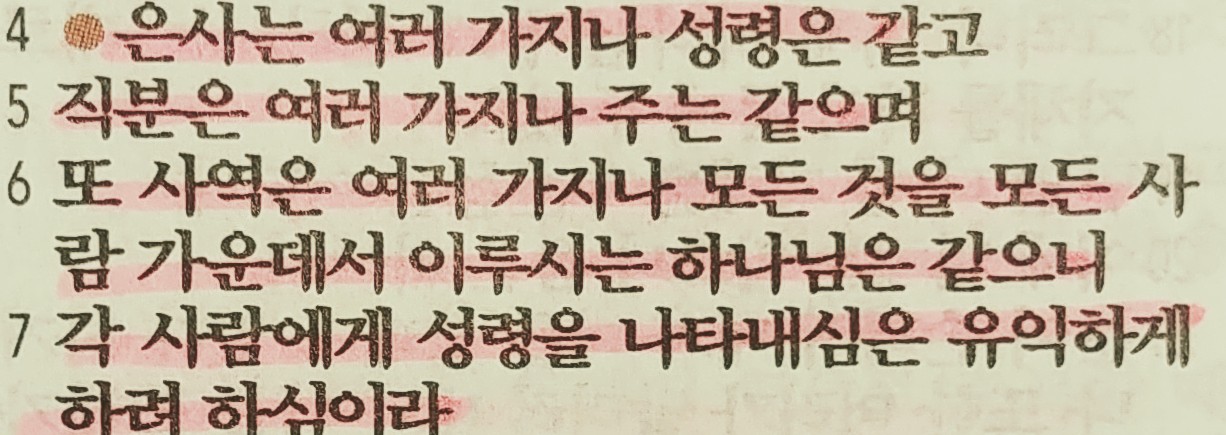 4 은사는 여러 가지나 성령은 같고
5 직분은 여러 가지나 주는 같으며
6 또 사역은 여러 가지나 모든 것을 모든 사
람 가운데서 이루시는 하나님은 같으니
7 각 사람에게 성령을 나타내심은 유익하게
하려 하심이라